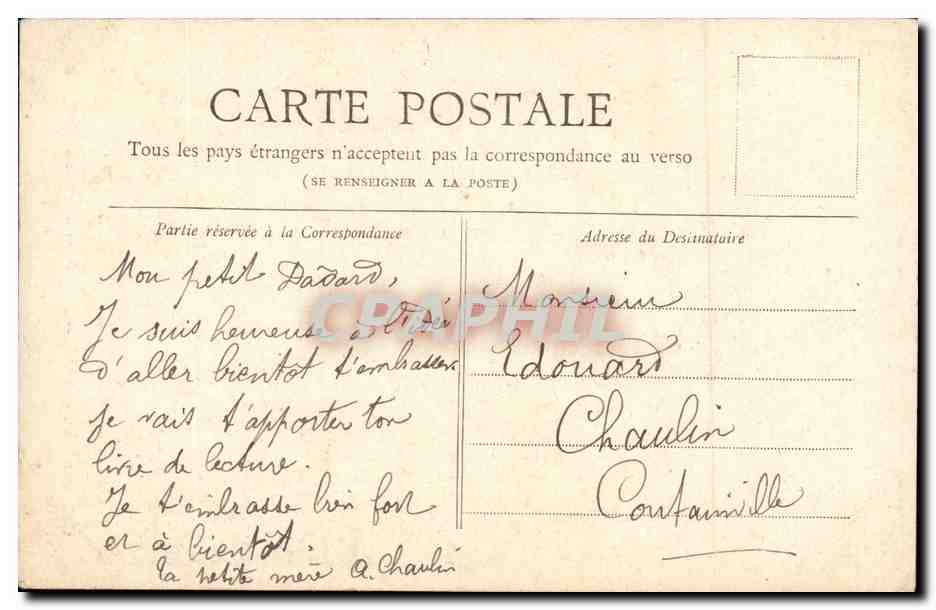 CARTE POSTALE
Tous les pays étrangers n'acceptent pas la correspondance au verso
(SE RENSEIGNER A LA POSTE)
Partie réservée à la Correspondance
Adresse du Destinataire
Mon petit Dadard,
Je suis heureuse à l'idée
d'aller bientôt t'embrasser
je vais t'apporter ton
livre de lecture.
Je t'embrasse bien fort
et à bientôt.
ta petite mère A. Chaulin
Monsieur
Edouard
Chaulin
Coutainville
CPAPHIL